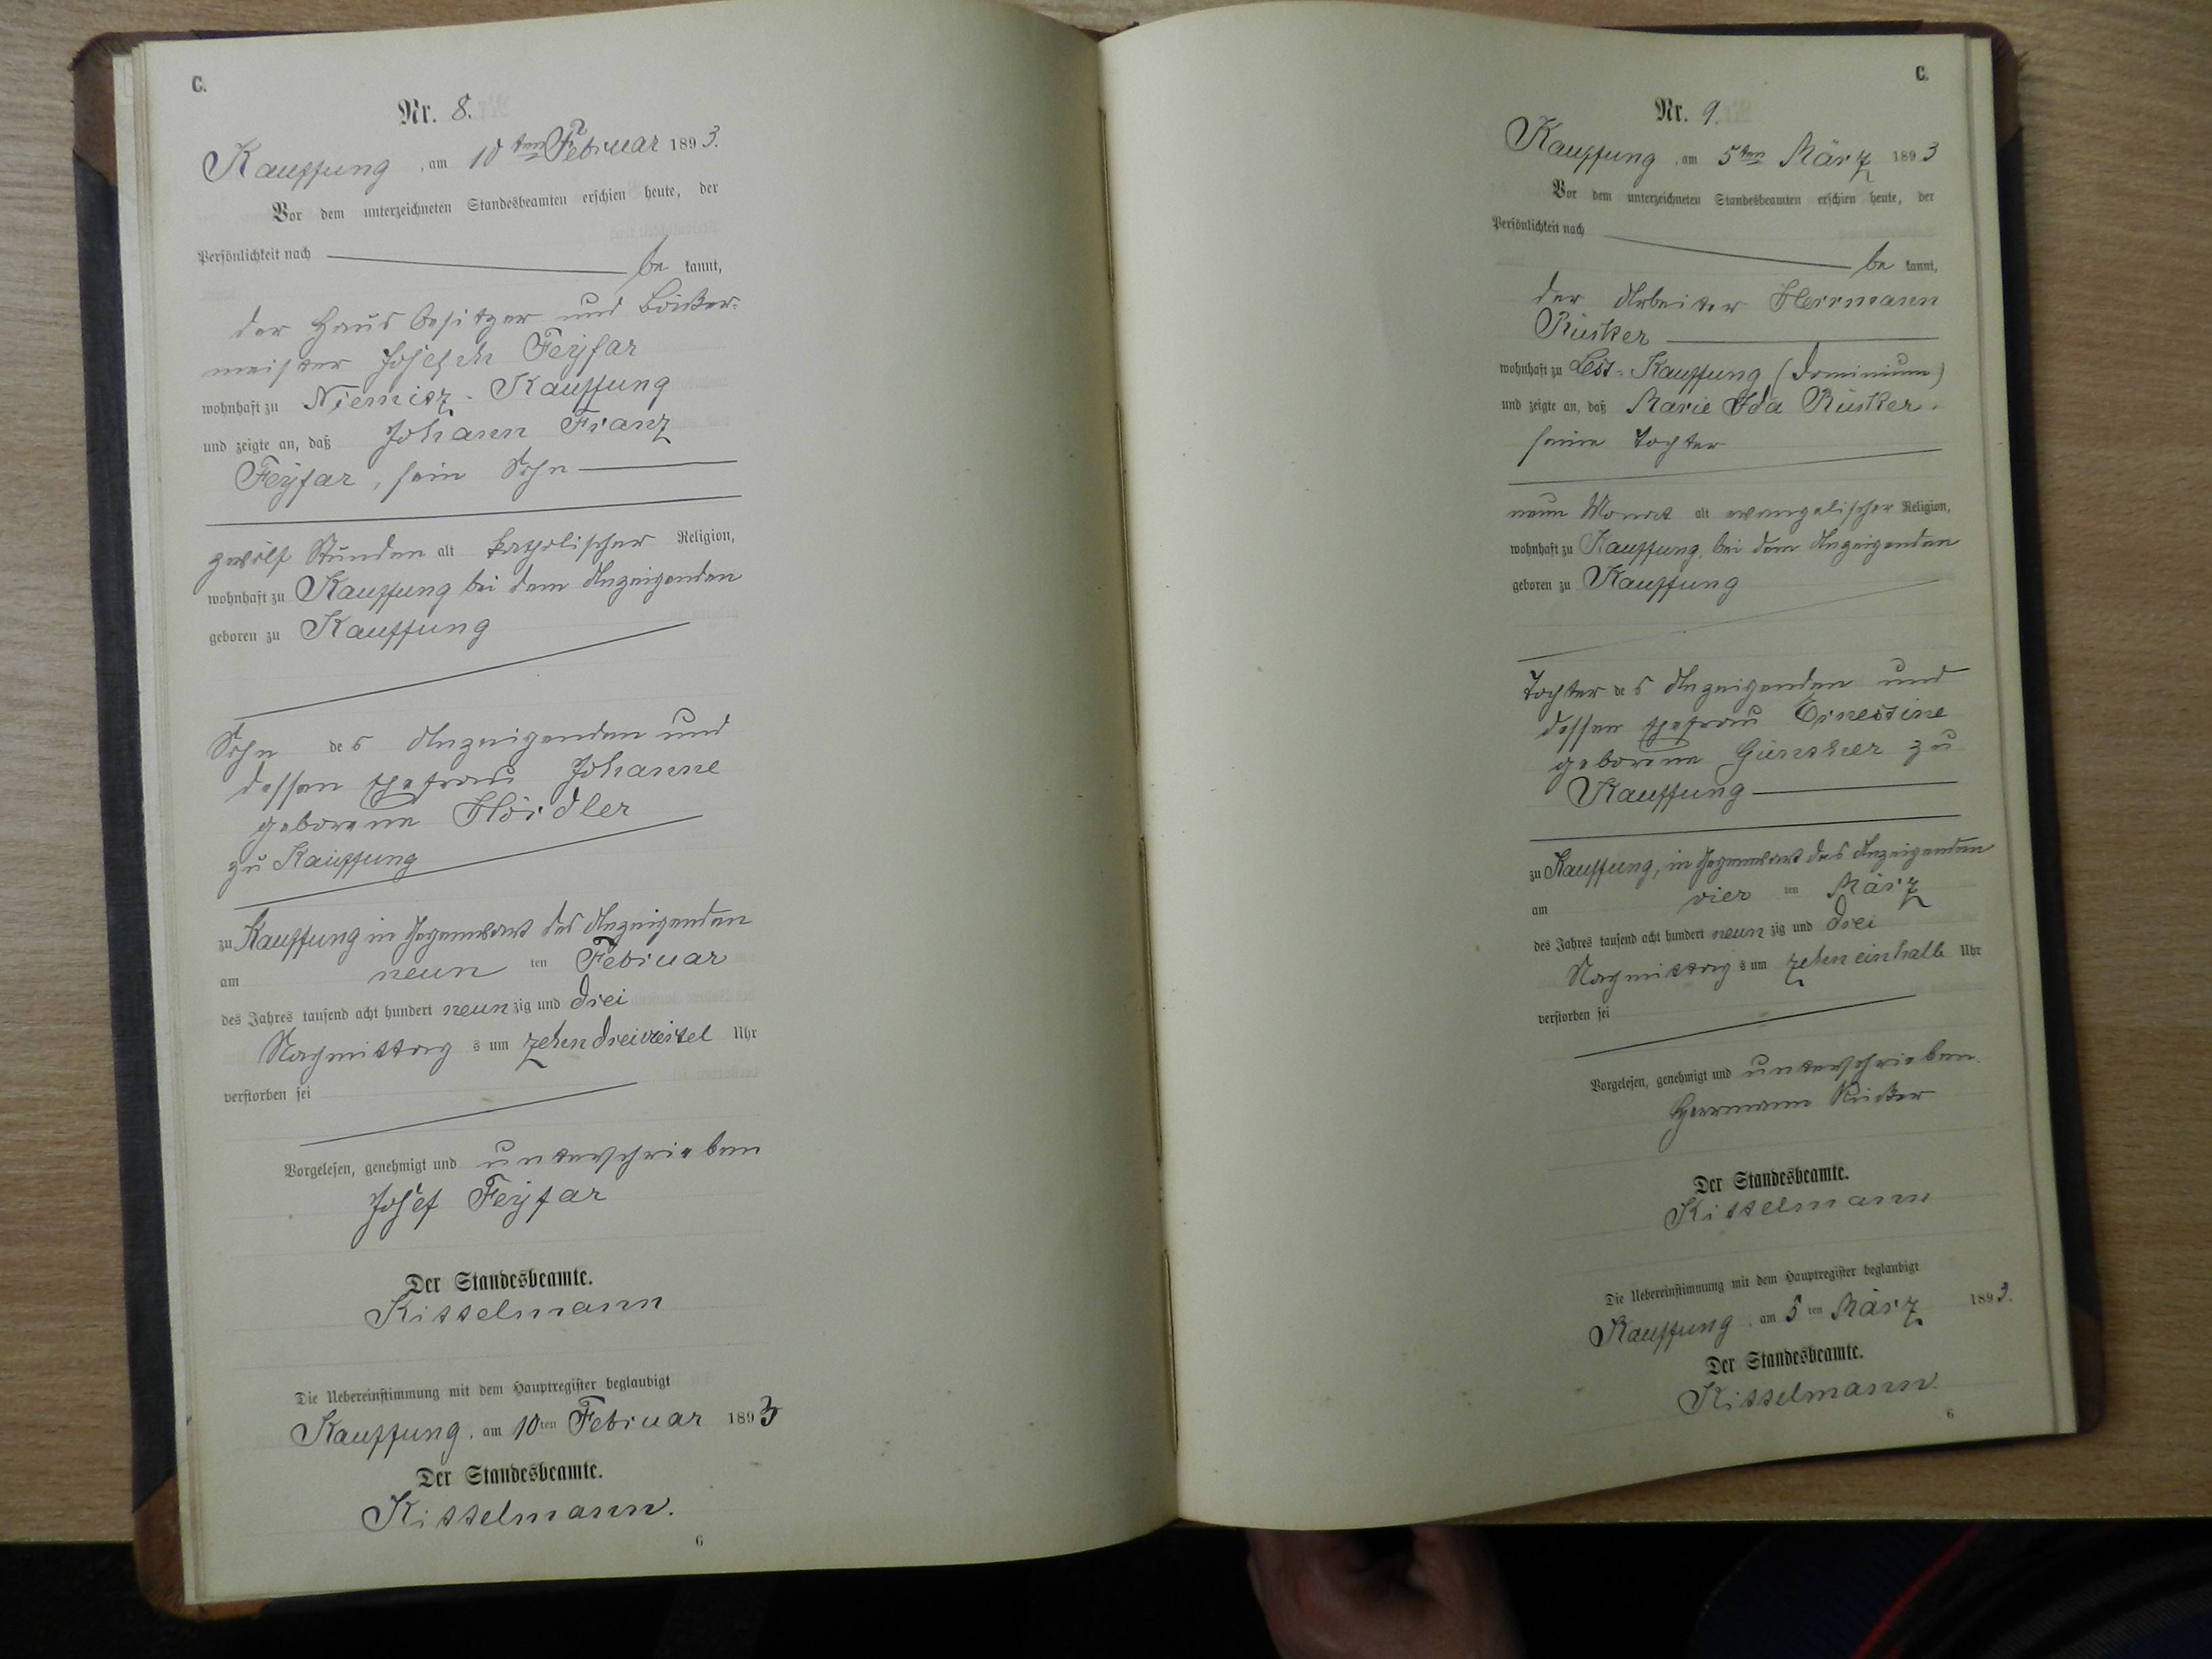 C.
Nr. 8.
Kauffung, am 10ten Februar 1893.
Vor dem unterzeichneten Standesbeamten erschien heute, der
Persönlichkeit nach be kannt,
der Hausbesitzer und
meister Joseph Feijfar
wohnhaft zu Niemitz-Kauffung
und zeigte an, daß Johann Franz
Feijfar, sein Sohn
zwölf Stunden alt katholischer Religion,
wohnhaft zu Kauffung bei dem Anzeigenden
geboren zu Kauffung
Sohn des Anzeigenden und
dessen Ehefrau Johanne
geborene
zu Kauffung
zu Kauffung in Gegenwart des Anzeigenden
am neun ten Februar
des Jahres tausend acht hundert neunzig und drei
Nachmittags um zehn dreiviertel Uhr
verstorben sei
Vorgelesen, genehmigt und unterschrieben
Josef Feijfar
Der Standesbeamte.
Kittelmann
Die Uebereinstimmung mit dem Hauptregister beglaubigt
Kauffung, am 10ten Februar 1893
Der Standesbeamte.
Kittelmann.
6
C.
Nr. 9.
Kauffung, am 5ten März 1893
Vor dem unterzeichneten Standesbeamten erschien heute, der
Persönlichkeit nach be kannt,
der Arbeiter Herrmann
Rüsker
wohnhaft zu Lest-Kauffung (Dominium)
und zeigte an, daß Marie Ida Rüsker.
seine Tochter
neun Monat alt evangelischer Religion,
wohnhaft zu Kauffung, bei dem Anzeigenden
geboren zu Kauffung
Tochter des Anzeigenden und
dessen Ehefrau Ernestine
geborene Günther zu
Kauffung
zu Kauffung, in Gegenwart des Anzeigenden
am vier ten März
des Jahres tausend acht hundert neunzig und drei
Nachmittags um zehn einhalb Uhr
verstorben sei
Vorgelesen, genehmigt und unterschrieben.
Herrmann Rüsker
Der Standesbeamte.
Kittelmann
Die Uebereinstimmung mit dem Hauptregister beglaubigt
Kauffung, am 5ten März 1893.
Der Standesbeamte.
Kittelmann.
6